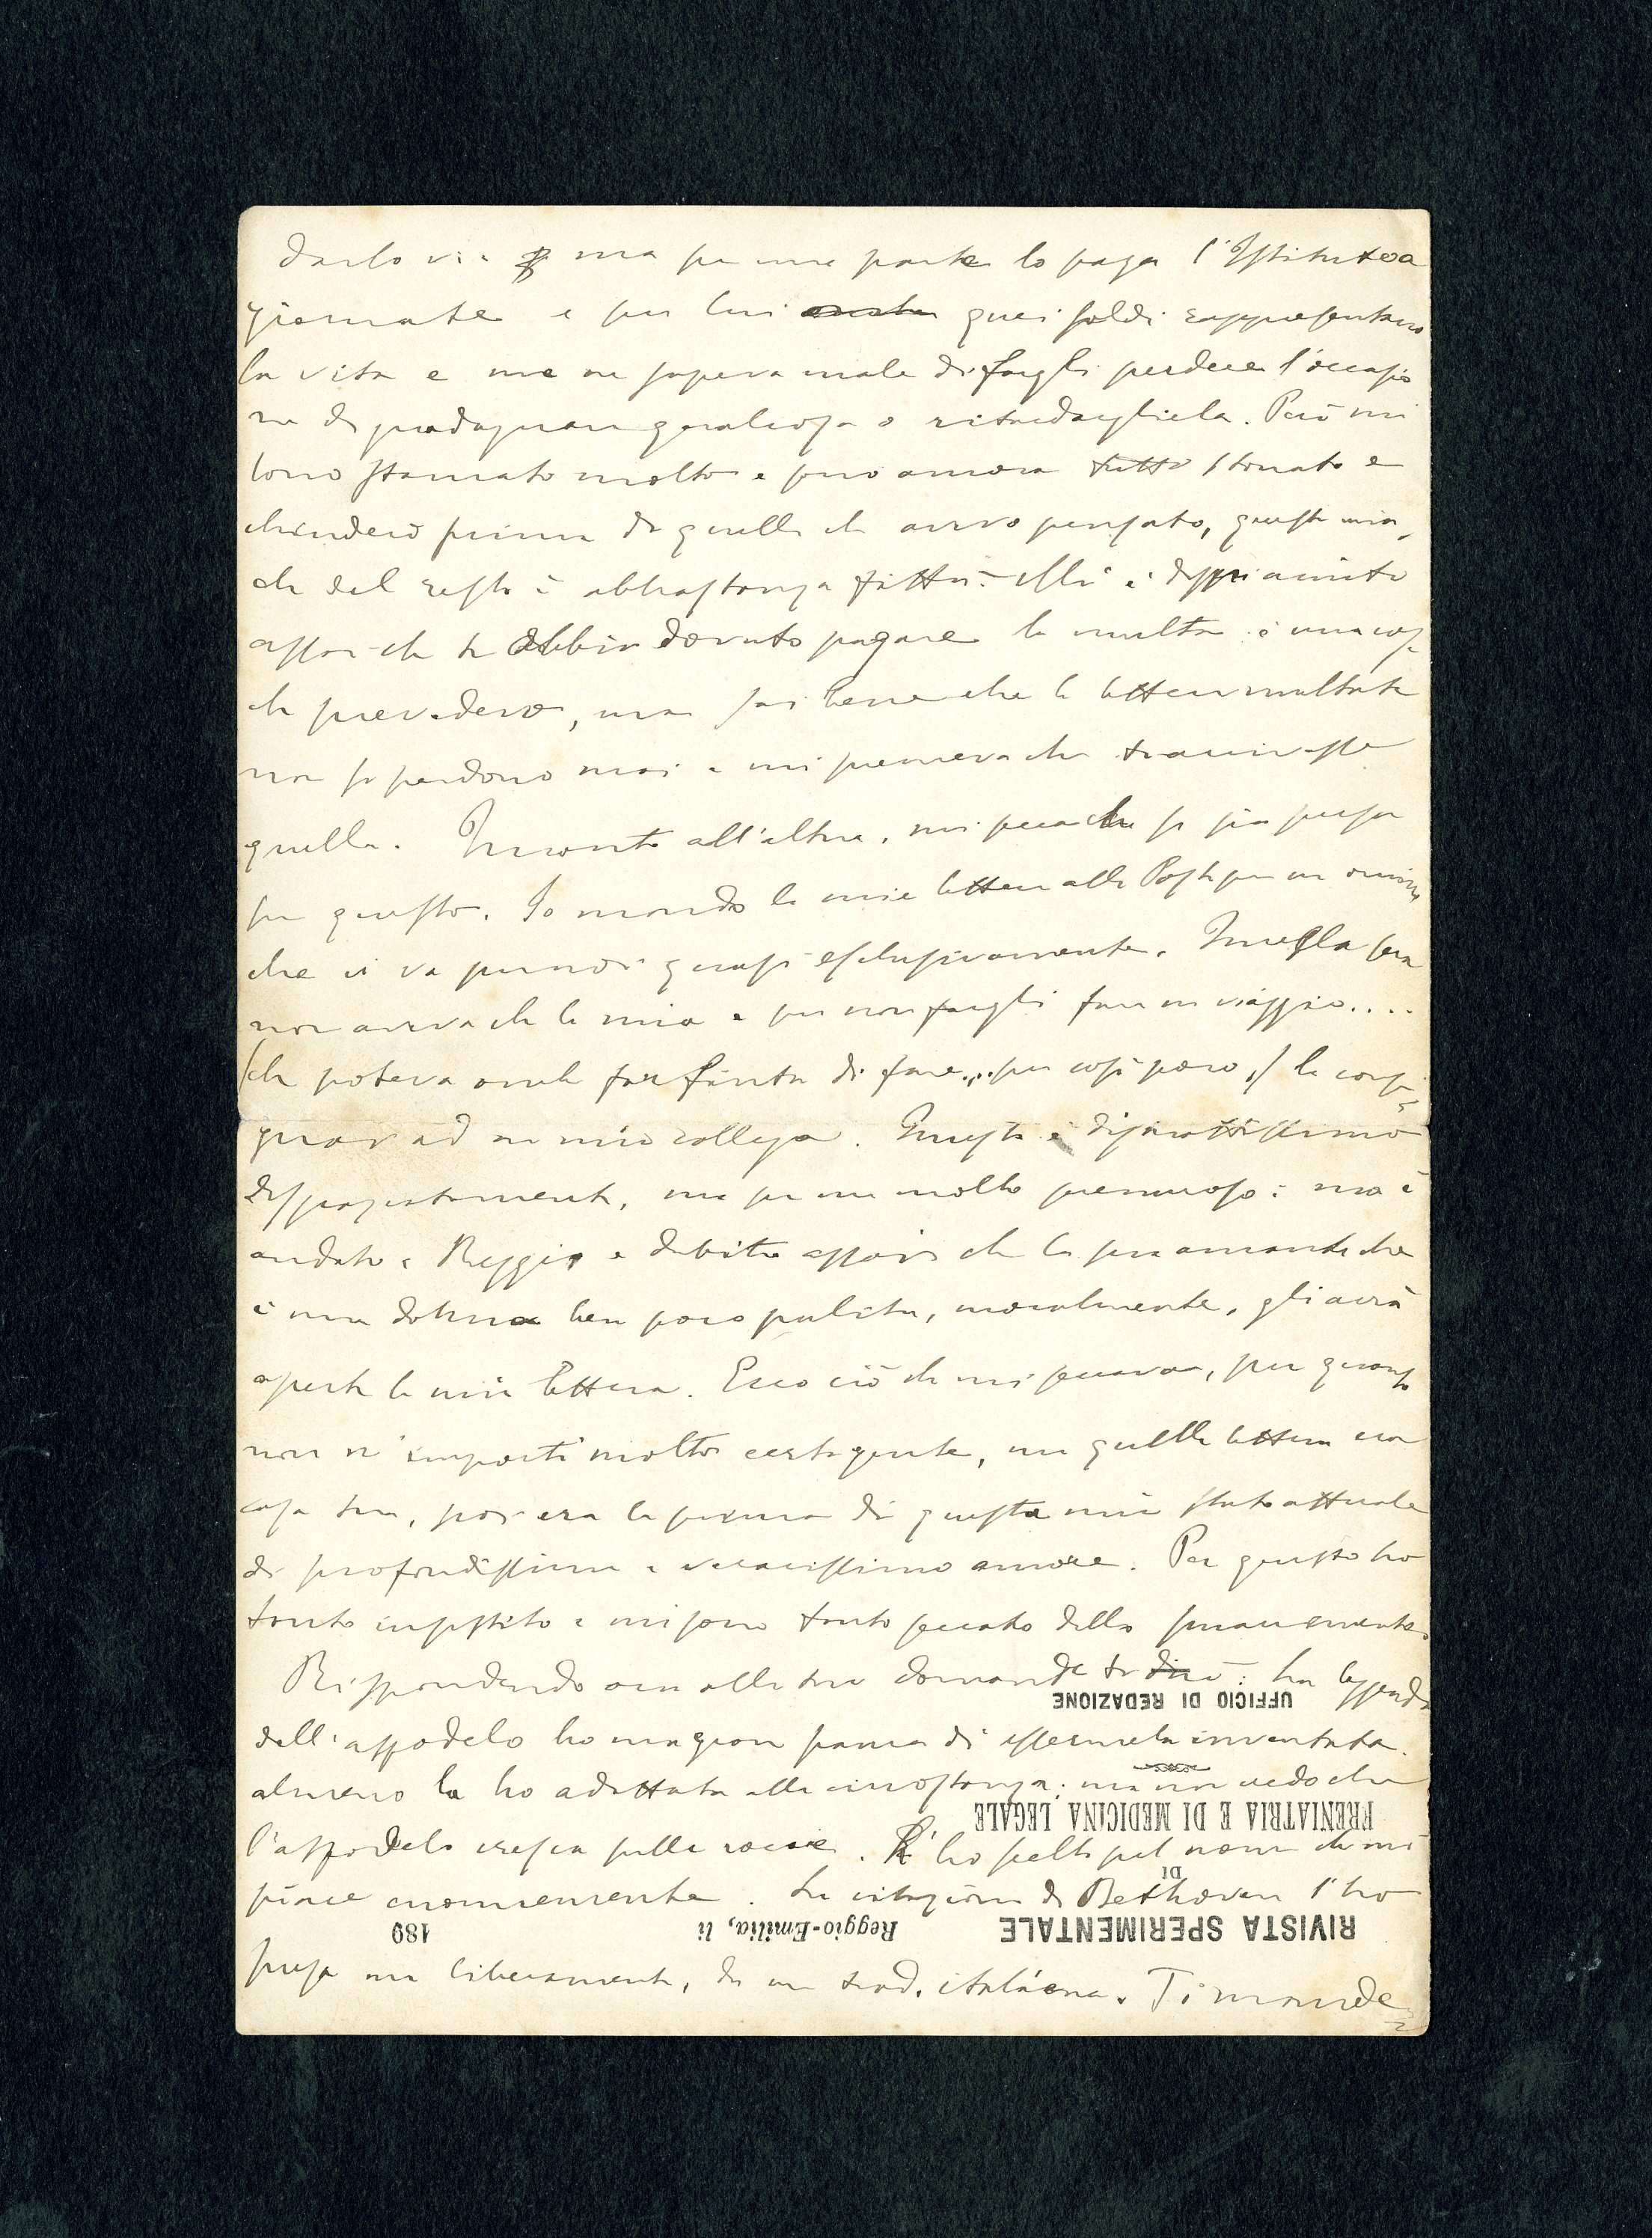 darlo via ma per una parte lo paga l'Istituto a
giornate e per lui quei soldi rappresentano
la vita e me ne sapeva male di fargli perdere l'occasio
ne di guadagnare qualcosa o ritardargliela. Però mi
sono stancato molto e sono ancora tutto stonato e
chiuderò prima di quello che avevo pensato, questa mia,
che del resto è abbastanza fitta. Mi è dispiaciuto
assai che tu abbia dovuto pagare la multa: è una cosa
che prevedevo, ma sai bene che le lettere multate
non si perdono mai e mi premeva che ti arrivasse
quella. In quanto all'altra, mi pare che si sia persa
per questo. Io mando le mie lettere alla Posta per un omino
che ci va per noi quasi esclusivamente. Quella sera
non aveva che la mia e per non fargli fare un viaggio....
(che poteva anche far finta di fare... per così poco,) la conse
gnai ad un mio collega. Questo è distrattissimo
disperatamente, ma per me molto premuroso: ma è
andato a Reggio e dubito assai che la sua amante che
è una donna ben poco pulita, moralmente, gli avrà
aperta la mia lettera. Ecco ciò che mi seccava, per quanto
non m'importi molto certa gente, ma quella lettera era
cosa tua, poi era la prima di questo mio stato attuale
di profondissimo e veracissimo amore. Per questo ho
tanto insistito e mi sono tanto seccato dello smarrimento.
Rispondendo ora alle tue domande ti dirò: la leggenda
dell'asfodelo ho una gran paura di essermela inventata.
almeno la ho adattata alla circostanza: ma non vedo che
l'asfodelo cresca sulle rocce. L'ho scelto pel nome che mi
piace enormemente. La citazione di Bethoven l'ho
presa ma liberamente, da una trad. italiana. Ti mande
UFFICIO DI REDAZIONE
FRENIATRIA E DI MEDICINA LEGALE
DI
RIVISTA SPERIMENTALE
Reggio-Emilia, li 189